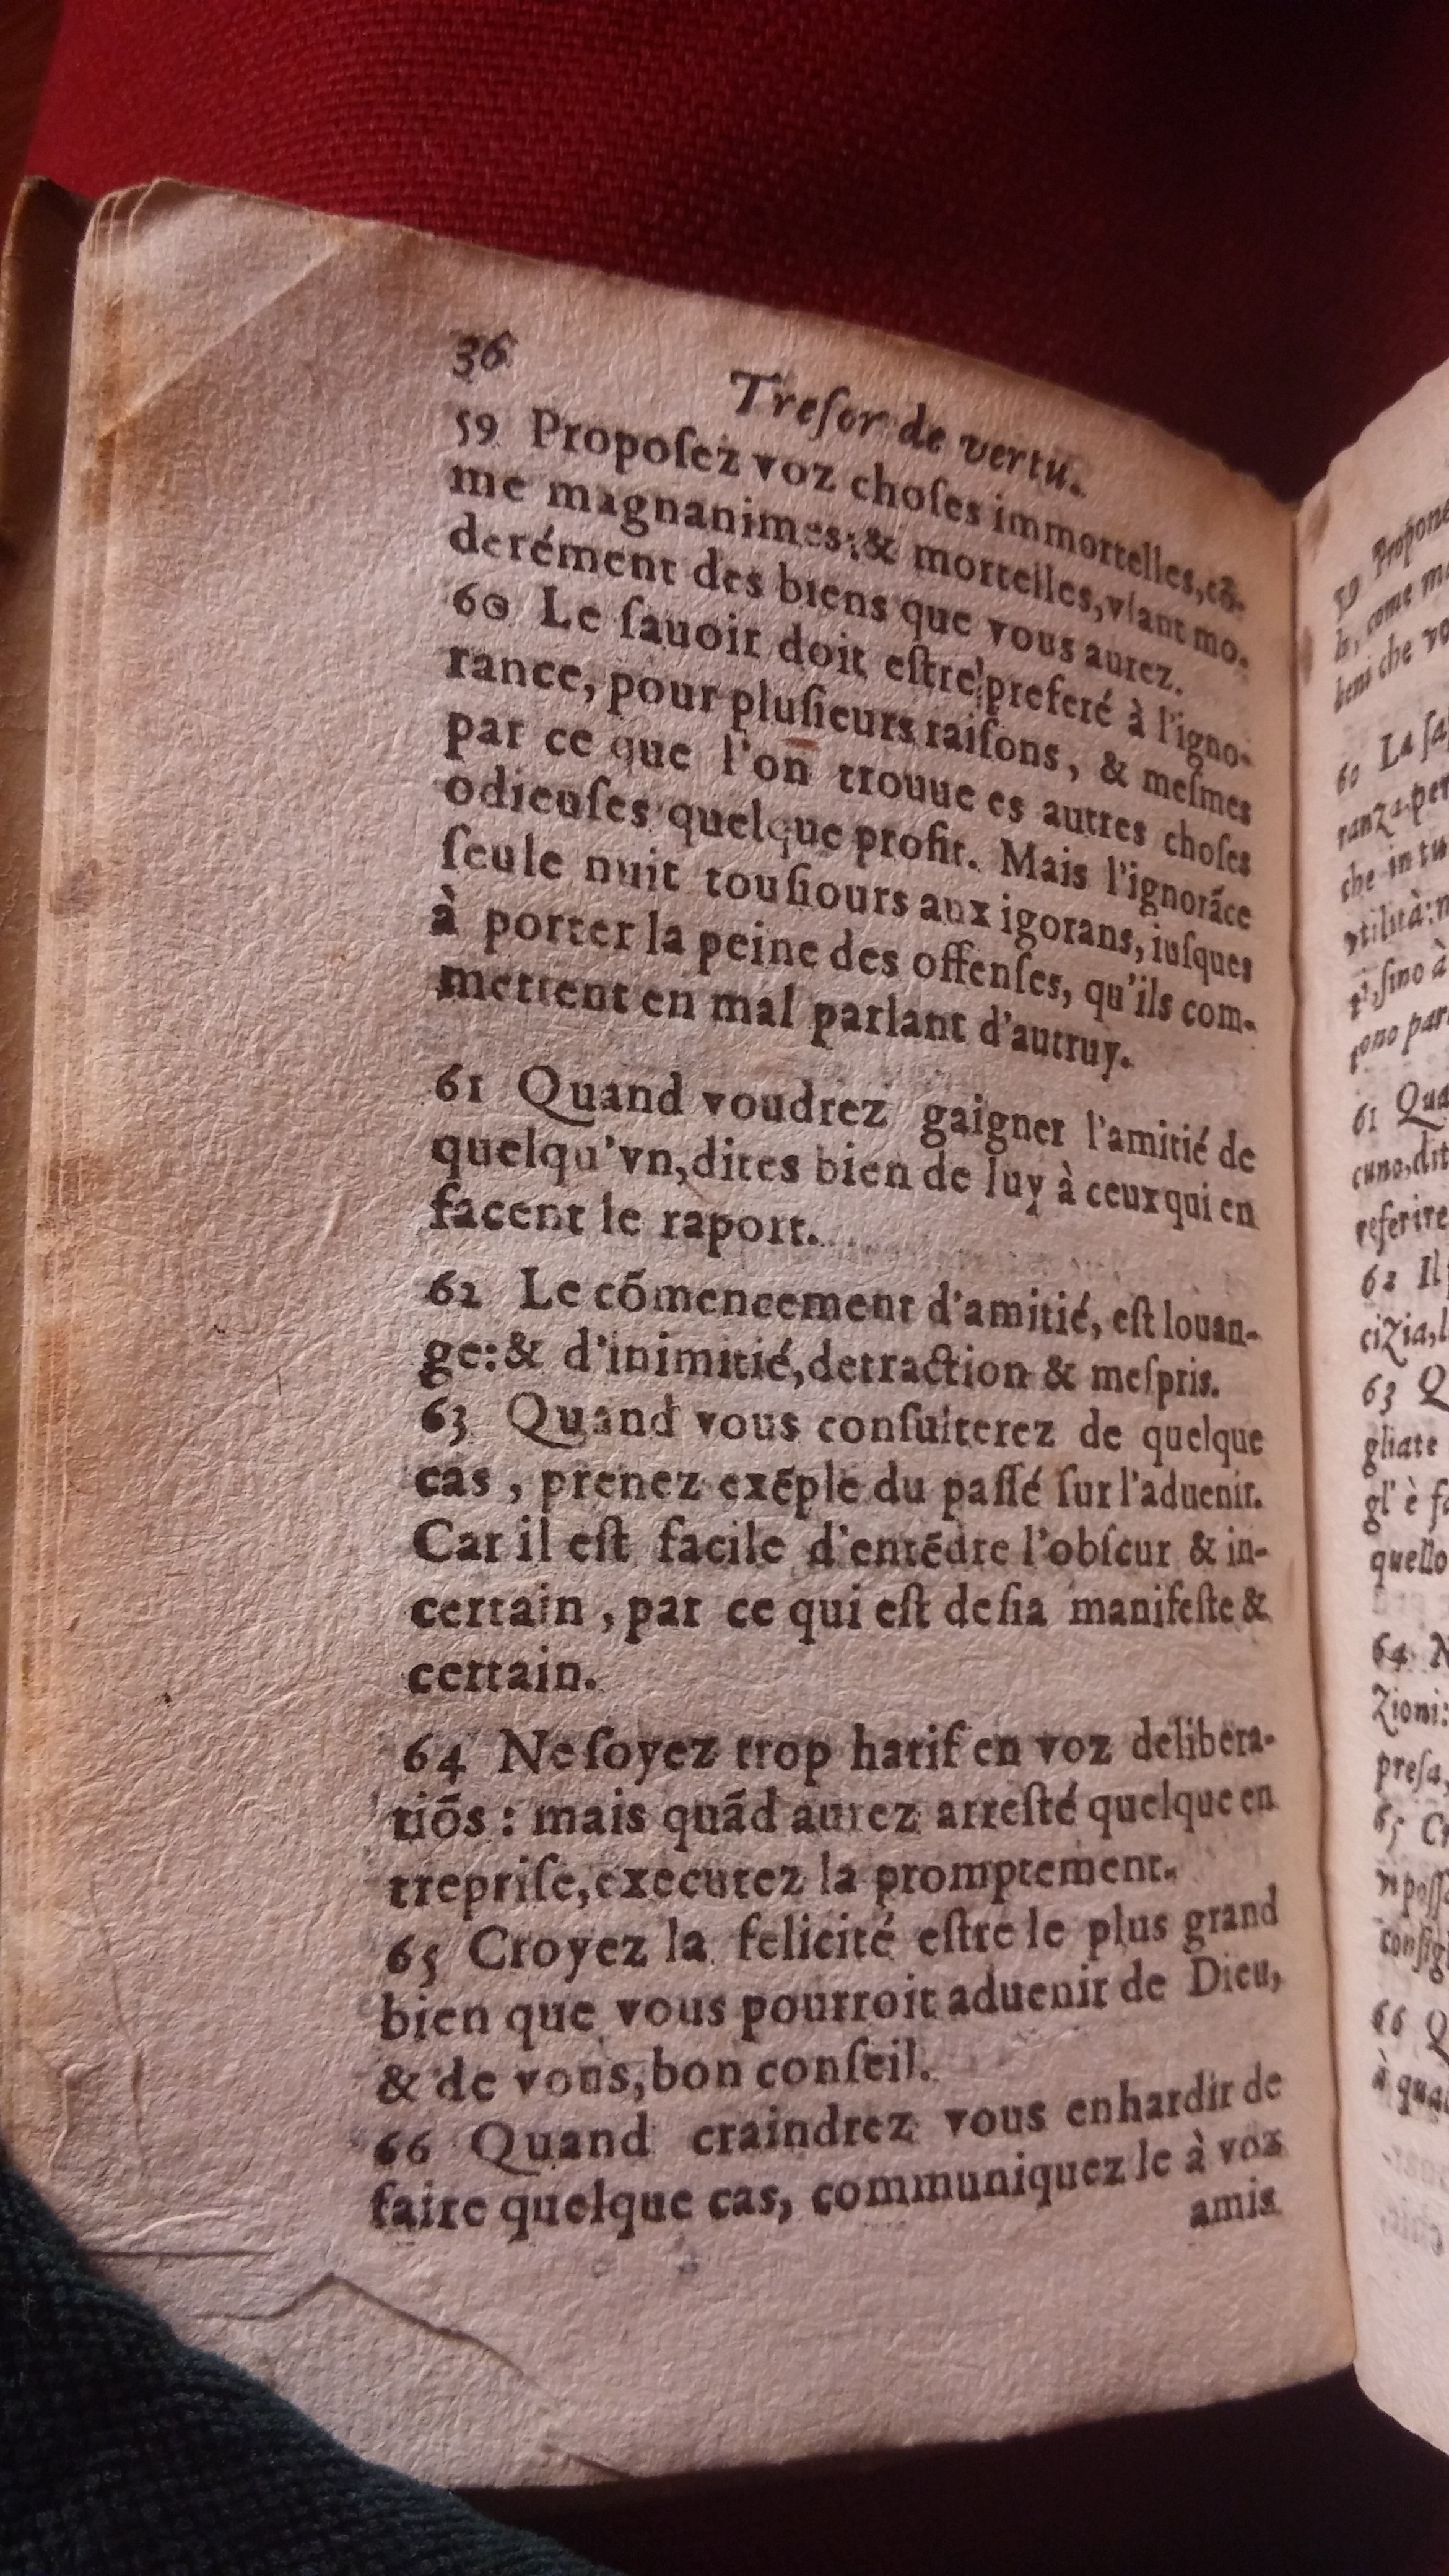 36
Treſor de vertu.
59 Propoſez voz choſes immortelles, cõ-
me magnanimes; & mortelles, vſant mo-
derément des biens que vous aurez.
60 Le ſauoir doit eſtre preferé à l'igno-
rance, pour pluſieurs raiſons, & meſmes
par ce que l'on trouue es autres choſes
odieuſes quelque profit. Mais l'ignorãce
ſeule nuit touſiours aux igorans, iuſques
à porter la peine des offenſes, qu'ils com-
mettent en mal parlant d'autruy.
61 Quand voudrez gaigner l'amitié de
quelqu'vn, dites bien de luy à ceux qui en
facent le raport.
62 Le cõmencement d'amitié, eſt louan-
ge: & d'inimitié, detraction & meſpris.
63 Quand vous conſulterez de quelque
cas, prenez exẽple du paſſé ſur l'aduenir.
Car il eſt facile d'entẽdre l'obſcur & in-
certain, par ce qui eſt deſia manifeſte &
certain.
64 Ne ſoyez trop hatif en voz delibera-
tiõs : mais quãd aurez arreſté quelque en
trepriſe, executez la promptement.
65 Croyez la felicité eſtre le plus grand
bien que vous pourroit aduenir de Dieu,
& de vous, bon conſeil.
66 Quand craindrez vous enhardir de
faire quelque cas, communiquez le à voz
amis
59 Propone
come
beni che
60 La
ranza per
che in tu
vtilità:
ſino à
61
referire
62 Il
cizia,
63 Q
gliate
gl' è
quello
64
zioni:
preſa,
65
66 Q
à